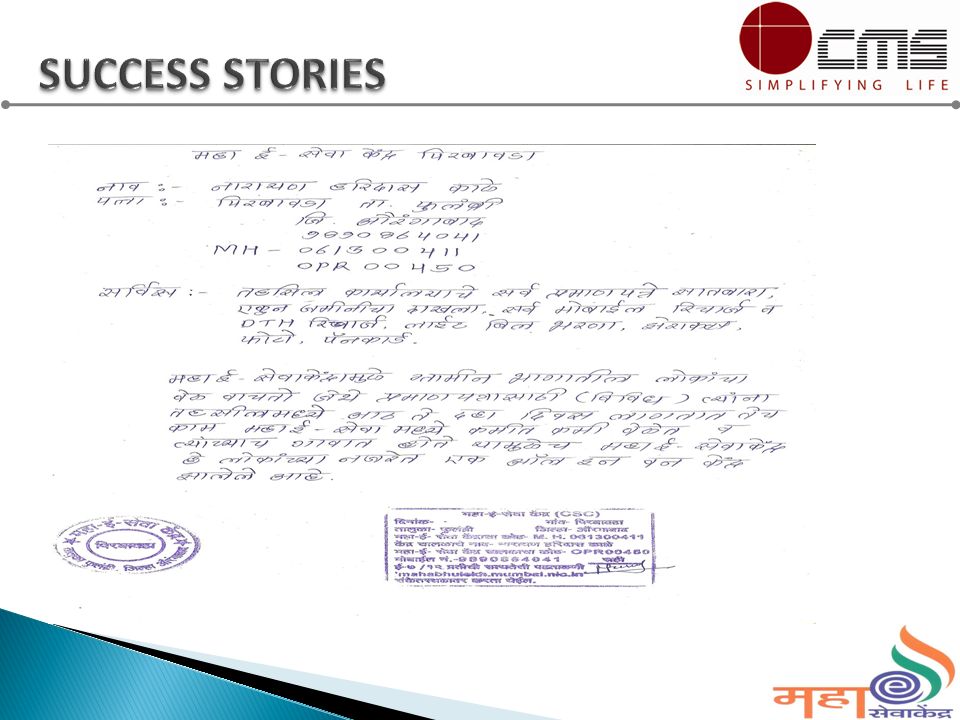 SUCCESS STORIES
CMS
SIMPLIFYING LIFE
महा ई - सेवा केंद्र पिरबावडा
नाव :- नारायण हरिदास काळे
पत्ता :- पिरबावडा ता. फुलंब्री
जि. औरंगाबाद
9890864041
MH - 061300411
OPR 00450
सर्विस :- तहसिल कार्यालयाचे सर्व प्रमाणपत्रे सातबारा,
एकुन जमीनीचा दाखला, सर्व मोबाईल रिचार्ज व
DTH रिचार्ज, लाईट बिल भरणा, झेरॉक्स,
फोटो, पॅनकार्ड.
महा ई - सेवाकेंद्रामुळे ग्रामीन भागातील लोकांचा
वेळ वाचतो जेथे प्रमाणपत्रासाठी (विविध) त्यांना
तहसीलमध्ये आठ ते दहा दिवस लागतात तेच
काम महाई - सेवा मध्ये कमीत कमी वेळेत व
त्यांच्याच गावात होते यामुळेच महाई - सेवाकेंद्र
हे लोकांच्या नजरेत एक ऑल इन वन केंद्र
झालेले आहे.
महा-ई-सेवा केंद्र
पिरबावडा
महा-ई-सेवा केंद्र (CSC)
दिनांक- गांव- पिरबावडा
तालुका- फुलंब्री जिल्हा- औरंगाबाद
महा-ई- सेवा केंद्राचा कोड- M. H. 061300411
केंद्र चालकाचे नाव- नारायण हरिदास काळे
महा-ई- सेवा केंद्र चालकाचा कोड- OPR00450
मोबाईल नं.-9890864041 सही
"mahabhulekh.mumbai.nic.in"
संकेतस्थळावर करता येईल.
महा e
सेवाकेंद्र